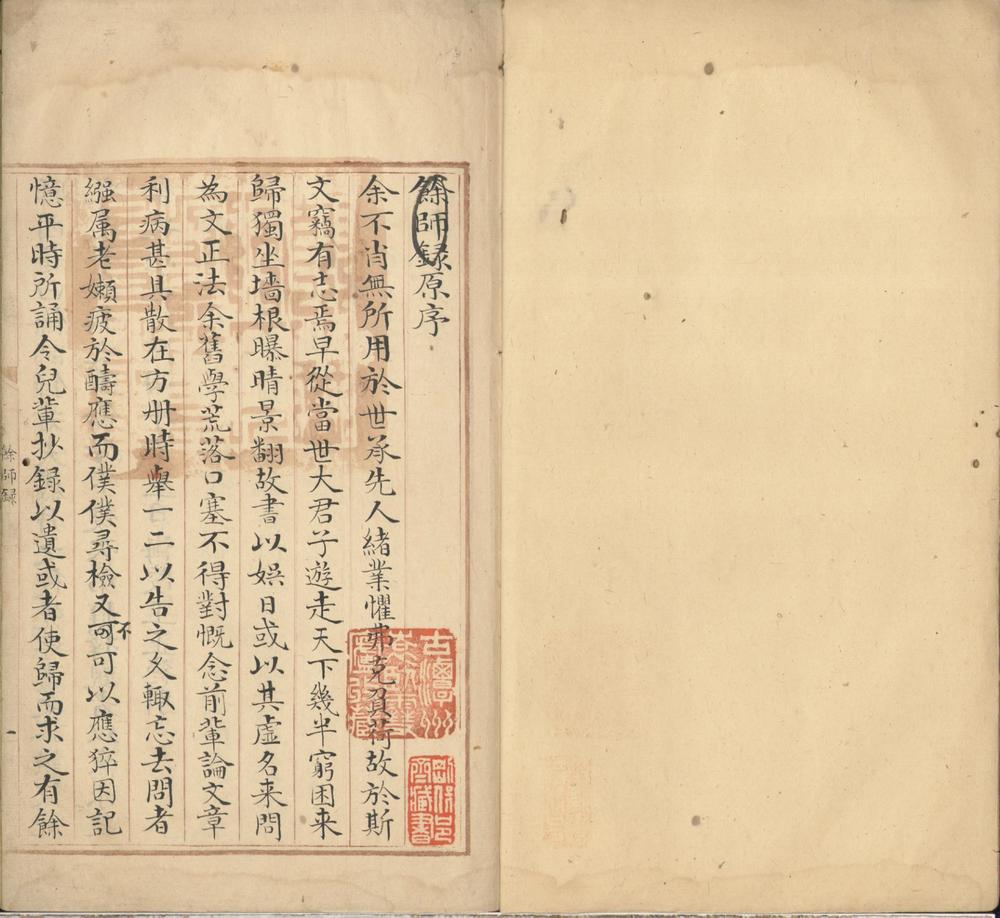 餘師録原序
余不肖無所用於世承先人緒業懼弗克負荷故於斯
文竊有志焉早從當世大君子遊走天下幾半窮困来
歸獨坐墻根曝晴景翻故書以娯日或以其虚名来問
為文正法余舊學荒落口塞不得對慨念前輩論文章
利病甚具散在方册時舉一二以告之久輙忘去問者
繦属老嬾疲於醻應而僕僕尋檢又不可可以應猝因記
憶平時所誦令兒輩抄録以遺或者使歸而求之有餘
餘師録
一